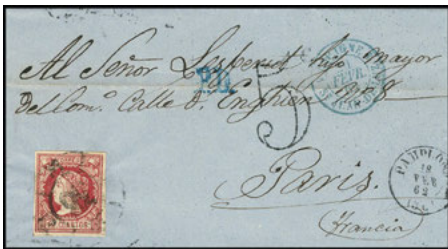 Al Señor Lesperut hijo mayor
P.D.
del Com.º Calle d. Enghien nº 8
5
FEVR.
Paris.
(Francia)
PAMPLONA
18
FEB
62